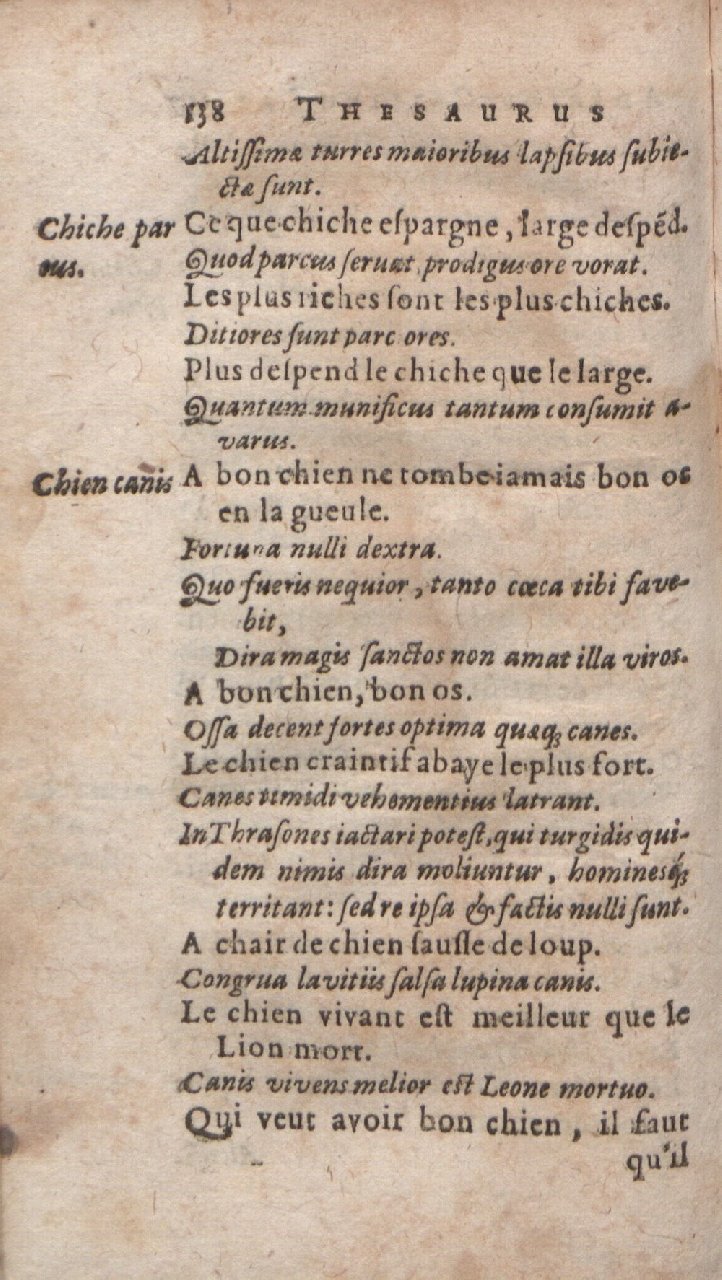 138 THESAURUS
Altissimæ turres maioribus lapsibus subie-
ctæ sunt.
Chiche par Ce que chiche espargne, large despẽd.
cus. Quod parcus servat, prodigus ore vorat.
Les plus riches sont les plus chiches.
Ditiores sunt parc ores.
Plus despend le chiche que le large.
Quantum munificus tantum consumit a-
varus.
Chien canis A bon chien ne tombe iamais bon os
en la gueule.
Fortuna nulli dextra.
Quo fueris nequior, tanto cœca tibi fave-
bit,
Dira magis sanctos non amat illa viros.
A bon chien, bon os.
Ossa decent fortes optima quæq; canes.
Le chien craintif abaye le plus fort.
Canes timidi vehementius latrant.
In Thrasones iactari potest, qui turgidis qui-
dem nimis dira moliuntur, hominesq́;
territant: sed re ipsa & factis nulli sunt.
A chair de chien sausse de loup.
Congrua lavitiis salsa lupina canis.
Le chien vivant est meilleur que le
Lion mort.
Canis vivens melior est Leone mortuo.
Qui veut avoir bon chien, il faut
qu'il